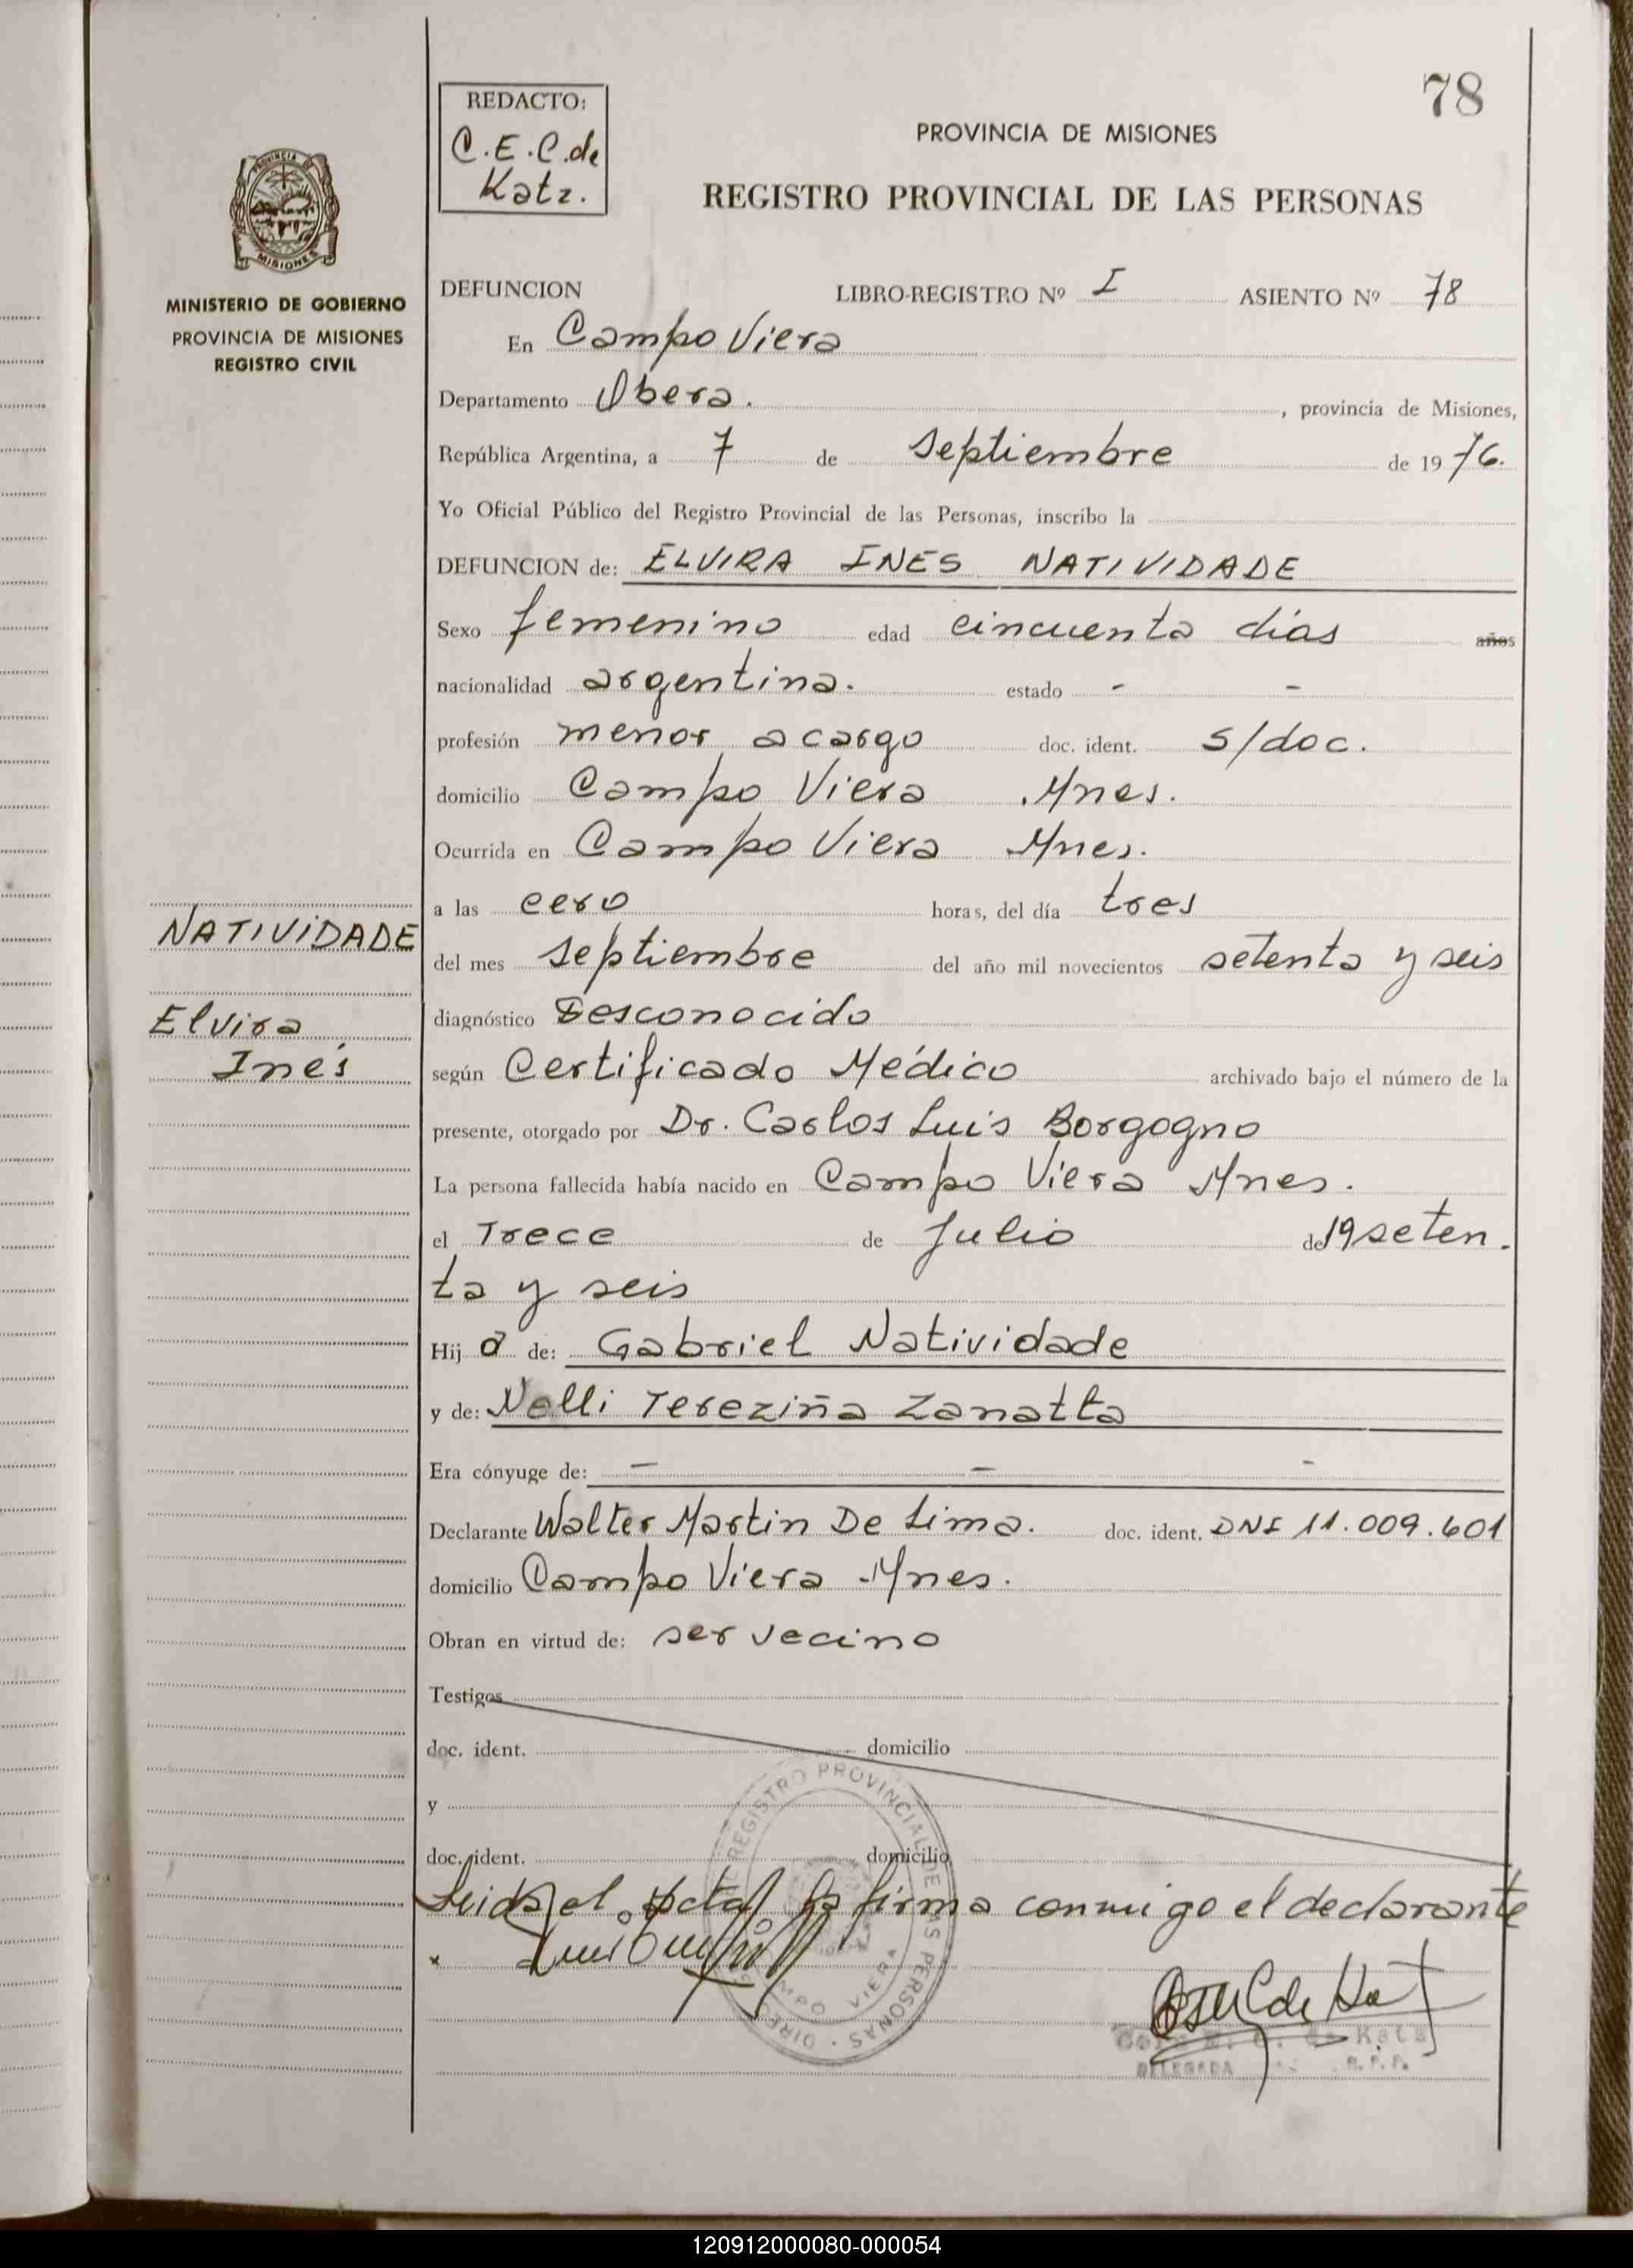 78
REDACTO:
C.E.C.de
Katz.
PROVINCIA DE MISIONES
REGISTRO PROVINCIAL DE LAS PERSONAS
PROVINCIA DE
MISIONES
MINISTERIO DE GOBIERNO
PROVINCIA DE MISIONES
REGISTRO CIVIL
DEFUNCION LIBRO-REGISTRO Nº I ASIENTO Nº 78
En Campo Viera
Departamento Obera. , provincia de Misiones,
República Argentina, a 7 de Septiembre de 1976.
Yo Oficial Público del Registro Provincial de las Personas, inscribo la
DEFUNCION de: ELVIRA INES NATIVIDADE
Sexo femenino edad cincuenta días años
nacionalidad argentina. estado - -
profesión menor a cargo doc. ident. s/doc.
domicilio Campo Viera Mnes.
Ocurrida en Campo Viera Mnes.
a las cero horas, del día tres
NATIVIDADE
del mes septiembre del año mil novecientos setenta y seis
diagnóstico Desconocido
Elvira
Inés
según Certificado Médico archivado bajo el número de la
presente, otorgado por Dr. Carlos Luis Borgogno
La persona fallecida había nacido en Campo Viera Mnes.
el Trece de Julio de 19 seten-
ta y seis
Hija de: Gabriel Natividade
y de: Nelli Tereziña Zanatta
Era cónyuge de: - - -
Declarante Walter Martin De Lima. doc. ident. DNI 11.009.601
domicilio Campo Viera Mnes.
Obran en virtud de: ser vecino
Testigos
doc. ident. domicilio
y
doc. ident. domicilio
Leida el acta la firma conmigo el declarante
REGISTRO PROVINCIAL DE LAS PERSONAS
CAMPO VIERA
de Katz
DELEGADA R.P.P.
120912000080-000054